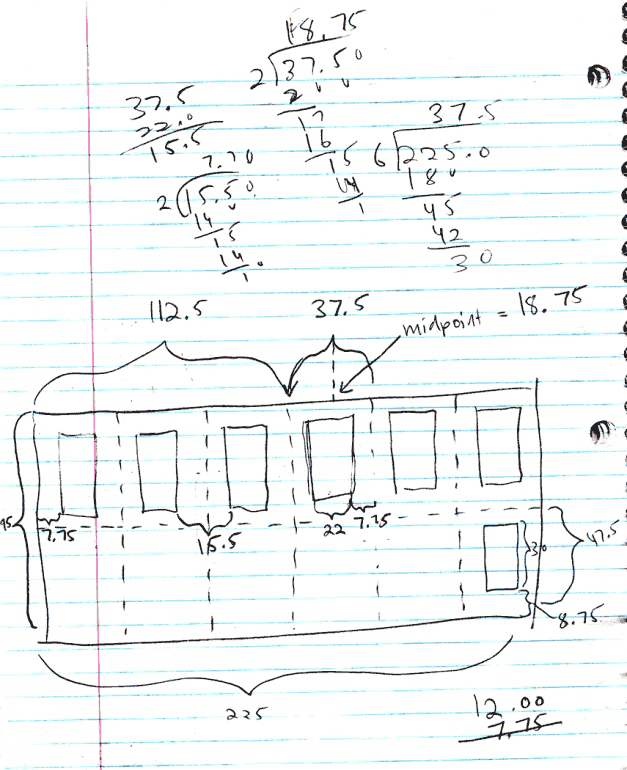 18.75
2)37.50
2
17
16
15
14
1
37.5
22.0
15.5
7.70
2)15.50
14
15
14
1
37.5
6)225.0
18
45
42
30
112.5
37.5
midpoint = 18.75
7.75
15.5
22
7.75
30
47.5
8.75
225
12.00
7.75